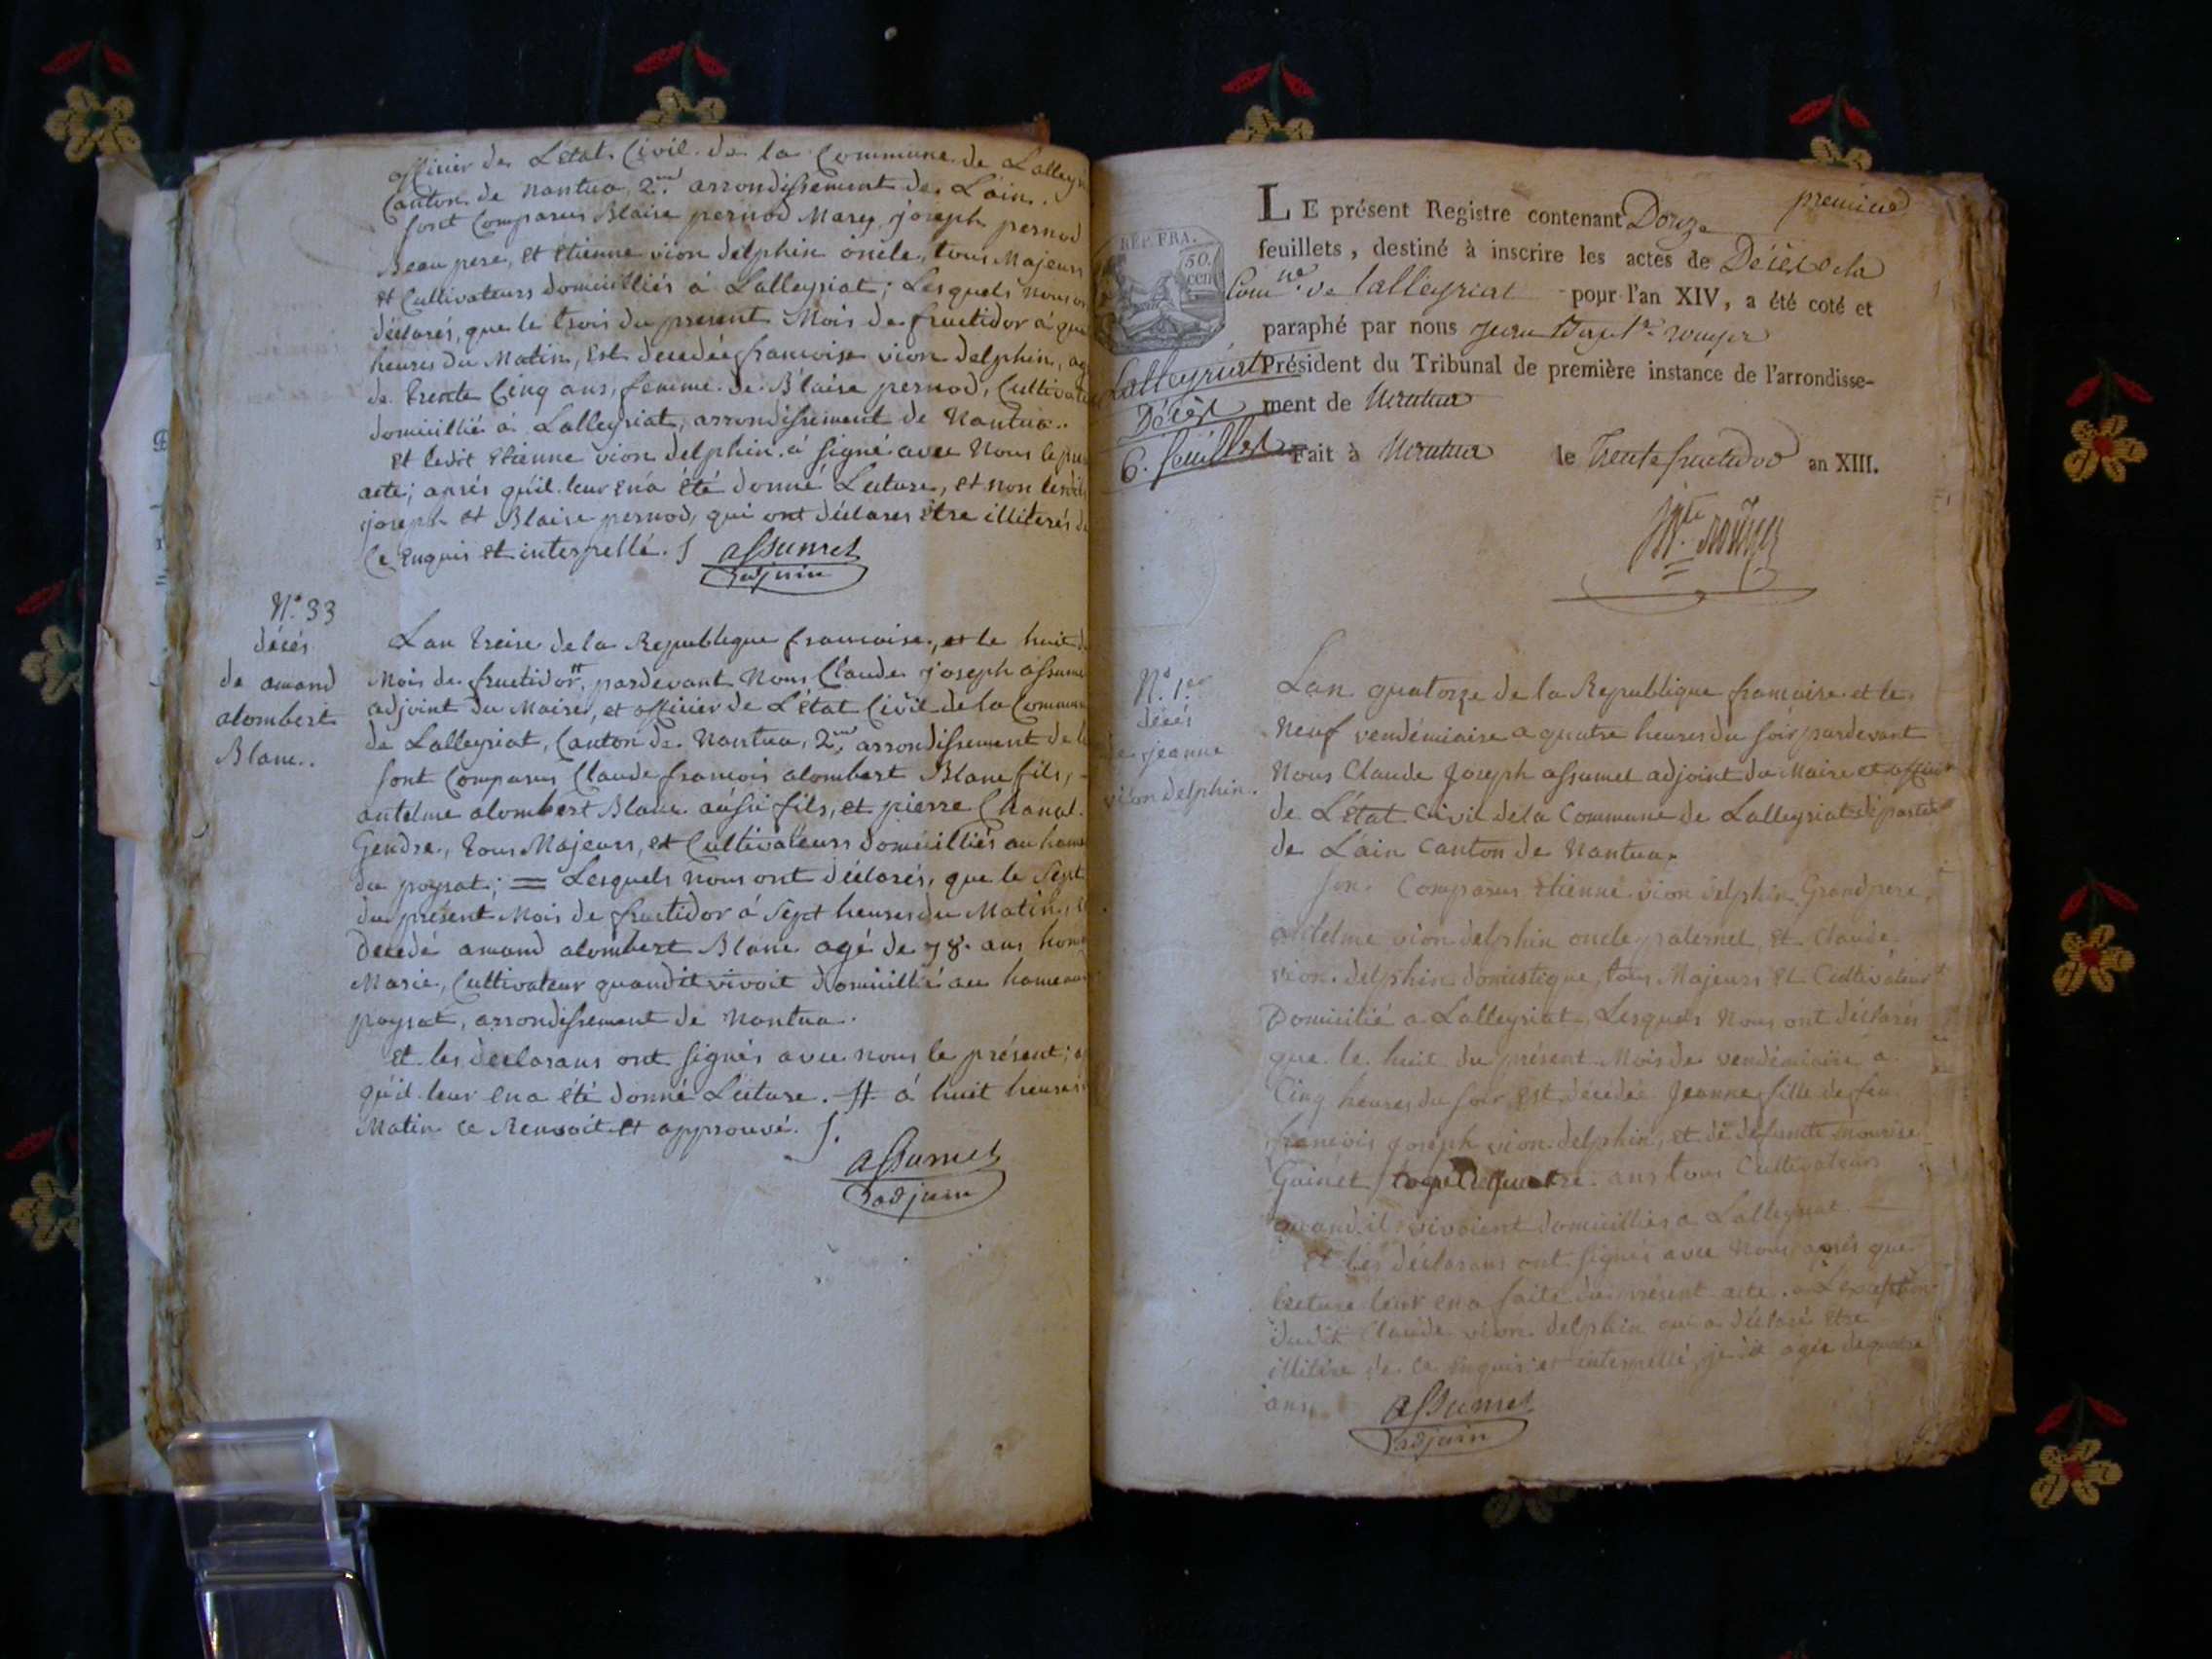 officier de Letat Civil de la Commune de Lalleyri
Canton de nantua, 2.me arrondissement de Lain.
sont Comparus Blaise pernod Mary, joseph pernod
Beau pere, et Etienne vion delphin oncle, tous Majeurs
et Cultivateurs domicilliés á Lalleyriat; Lesquels nous o
déclarés, que le trois du present Mois de fructidor á qua
heures du Matin, est decedée francoise vion delphin, ag
de trente Cinq ans, femme de Blaise pernod, Cultivate
domicillié á Lalleyriat, arrondissement de Nantua.
et ledit Etienne vion delphin á signé avec Nous le pre
acte; aprés qu'il leur en á été donné Lecture, et non lesdits
joseph et Blaise pernod, qui ont déclarés être illiterés d
Ce Enquis et interpellé. assumet
adjoin
N.o 33
décés
de amand
alombert
Blanc..
Lan treise de la Republique francoise, et le huit d
Mois de fructidor #, pardevant Nous Claude joseph assume
adjoint du Maire, et officier de L'état Civil de la Commun
de Lalleyriat, Canton de Nantua, 2.me arrondissement de L
sont Comparus Claude francois alombert Blanc fils,
antelme alombert Blanc aussi fils, et pierre Chanal
Gendre, tous Majeurs, et Cultivateurs domicilliés au hame
du poysat; = Lesquels nous ont déclarés, que le Sept
du présent Mois de fructidor á Sept heures du Matin, e
Decedé amand alombert Blanc agé de 78. ans hom
Marié, Cultivateur quand il vivoit domicillié au hameau
poysat, arrondissement de Nantua.
et les declarans ont signés avec nous le présent; a
qu'il leur en a été donné Lecture. # á huit heures
Matin ce Renvoit et approuvé.
assumet
adjoin
premier
LE présent Registre contenant Douze
feuillets, destiné à inscrire les actes de Décès de la
Com.ne de lalleyriat pour l'an XIV, a été coté et
paraphé par nous Jean Bapt.te rouyer
Président du Tribunal de première instance de l'arrondisse-
ment de Nantua
Fait à Nantua le Trente fructidor an XIII.
REP. FRA.
50.
cen
Lalleyriat
Décès
6. feuillet
N.o 1.er
décés
de jeanne
vion delphin.
Lan quatorze de la Republique francaise et le
Neuf vendémiaire a quatre heures du soir pardevant
Nous Claude Joseph assumet adjoint du Maire et officier
de L'état Civil de la Commune de Lalleyriat départe
de L'ain Canton de Nantua.
son Comparus Etienne vion delphin Grand pere,
antelme vion delphin oncle paternel, et Claude
vion delphin domestique, tous Majeurs et Cultivateur
Domicilié a Lalleyriat, Lesquels Nous ont déclarés
que le huit du présent Mois de vendémiaire a
Cinq heures du soir est décédée Jeanne fille de feu
francois joseph vion delphin, et de defunte
Guinet agé de quatre ans tous Cultivateurs
quand il vivoient domicilliés a Lalleyriat.
et les déclarans ont signés avec Nous aprés que
lecture leur en a faite du présent acte. a L'exception
dudit Claude vion delphin qui a déclaré être
illitéré de Ce Enquis et interpellé, je dit agée de quatre
ans, assumet
adjoin